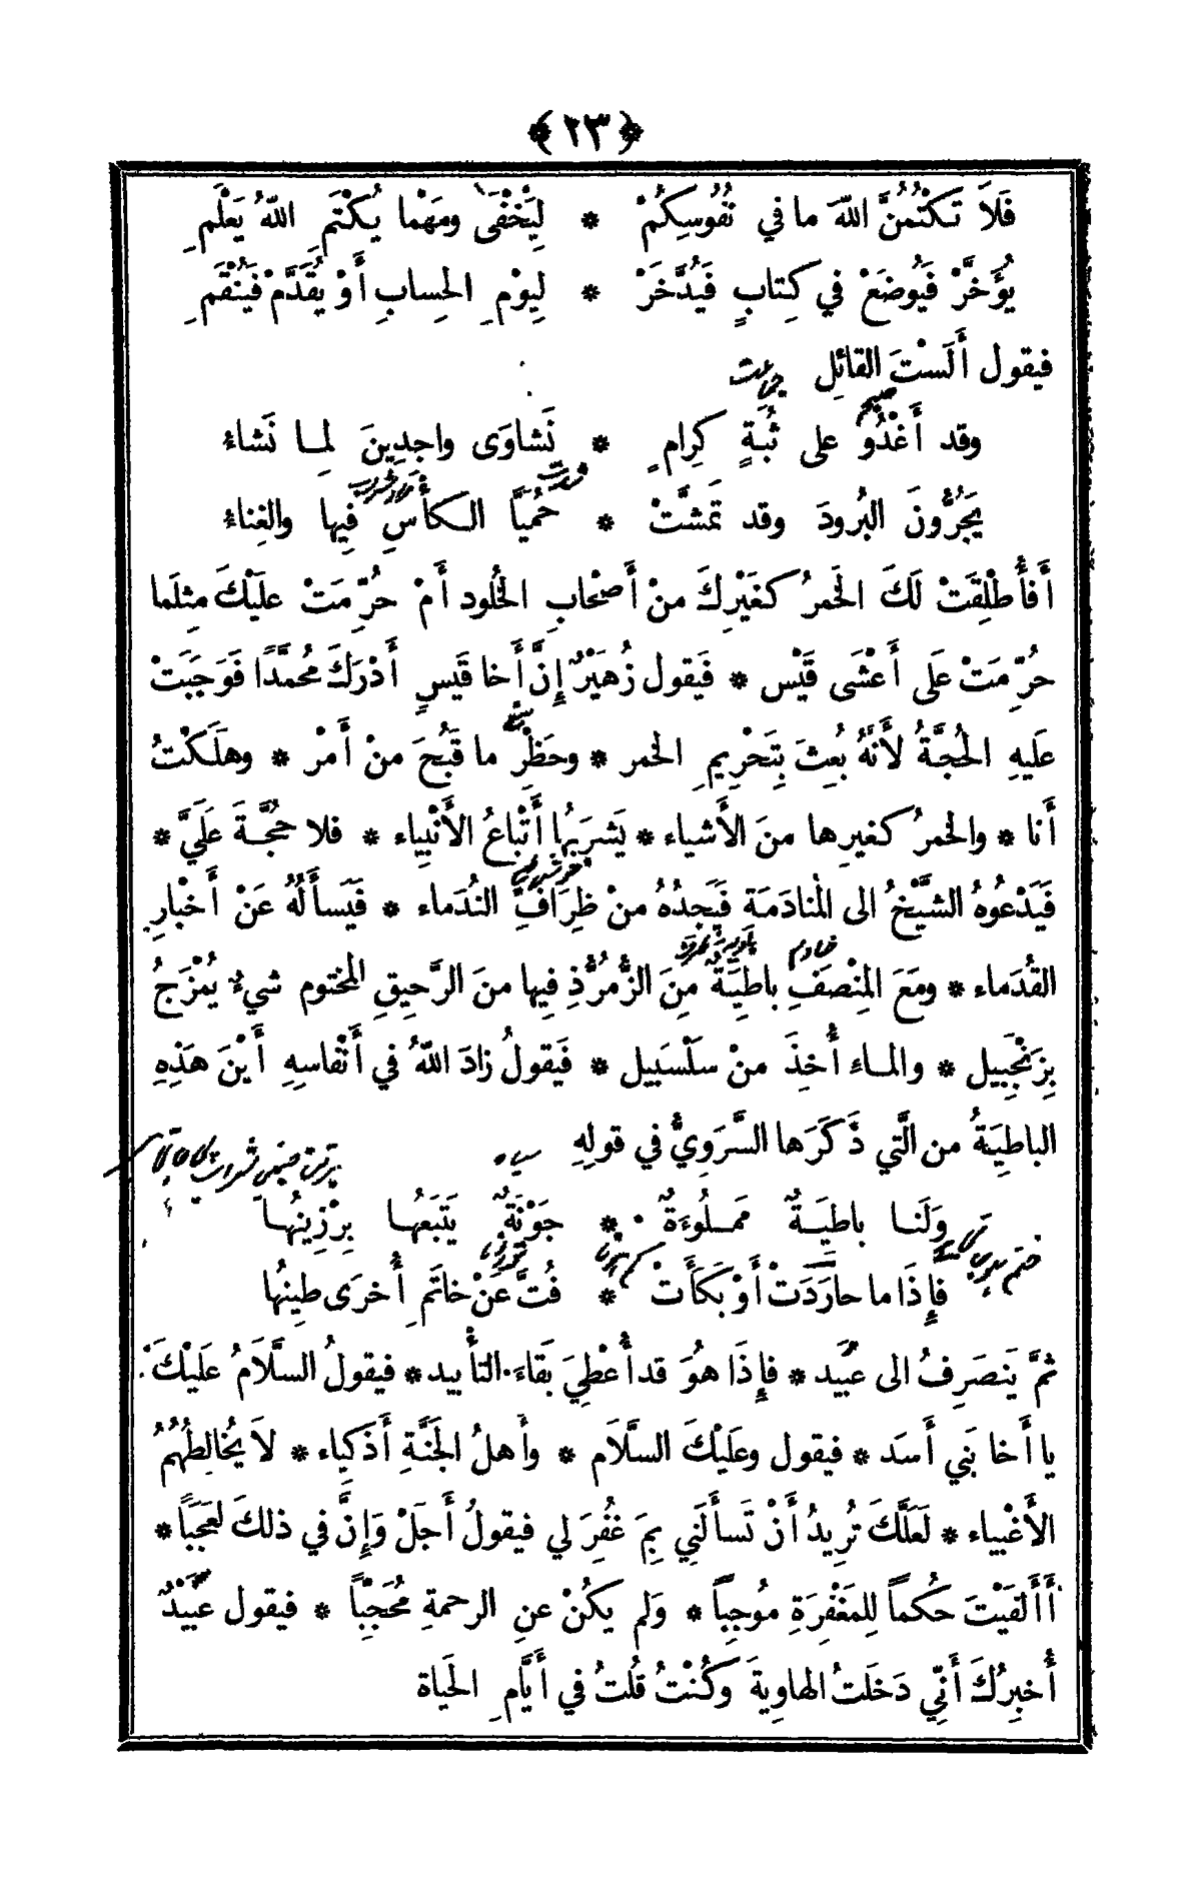 ﴿ ٢٣ ﴾
فَلَا تَكْتُمُنَّ اللّٰهَ ما في نُفُوسِكُمْ * لِيَخْفَى ومَهْما يُكْتَمِ اللّٰهُ يَعْلَمِ
يُؤَخَّرْ فَيُوضَعْ في كِتابٍ فَيُدَّخَرْ * لِيوْمِ الحِسابِ أَوْ يُقَدَّمْ فَيُنْقَمِ
فيقول أَلَسْتَ القائلِ
جماعت
صبح
وقد أَغْدُو على ثُبَةٍ كِرامٍ * نَشاوَى واجِدِينَ لِمـا نَشاءُ
يَجُرُّونَ البُرودَ وقد تَمَشَّتْ * حُمَيَّا الـكأْسِ فِيها والغِناءُ
أَفأُطْلِقَتْ لَكَ الخَمرُ كغَيْرِكَ منْ أَصْحابِ الخُلود أَمْ حُرِّمَتْ علَيْكَ مثِلَما
حُرِّمَتْ عَلَى أَعْشَى قَيْس * فَيقول زُهَيْرٌ إِنَّ أَخا قَيسٍ أَدْرَكَ مُحمَّدًا فَوَجَبَتْ
عَلَيهِ الحُجَّةُ لأَنَّهُ بُعِثَ بِتَحْرِيمِ الخمر * وحَظْرِ ما قَبُحَ منْ أَمْر * وهَلَكْتُ
أَنا * والخمرُ كغيرِها منَ الأَشياء * يَشرَبُها أَتْباعُ الأَنْبِياء * فلا حُجَّـةَ عَلَيَّ *
فَيَدْعُوهُ الشَّيْخُ الى المُنادَمَةِ فَيَجِدُهُ منْ ظِرَافِ النُدَماء * فَيَسأَلُهُ عَنْ أَخْبارِ
خادم
القُدَماء * ومَعَ المِنْصَفِ باطِيَةٌ مِنَ الزُّمُرُّذِ فِيها منَ الرَّحِيقِ المختوم شيءٌ يُمْزَجُ
بِزَنْجَبِيل * والمـاء أُخِذَ منْ سَلْسَبِيل * فَيَقولُ زادَ اللّٰهُ في أَنْفاسِهِ أَيْنَ هَذِهِ
الباطِيَةُ من الَّتي ذَكَرَها السَّرَوِيُّ في قولِهِ
سياه
وَلَنـا باطِيَـةٌ مَمـلُوءَةٌ * جَوْنَةٌ يَتبَعُهـا بِرْزِينُهـا
فإِذَا ما حارَدَتْ أَوْ بَكَأَتْ * فُتَّ عَنْ خاتَمِ أُخرَى طينُها
ثمَّ يَنصَرِفُ الى عبَيد * فإِذَا هُوَ قد أُعْطِيَ بَقاءَ التأْبيد * فيقولُ السَّلَامُ علَيْكَ
يا أَخا بَني أَسَد * فيقول وعلَيْكَ السَّلَام * وأَهلُ الجَنَّةِ أَذكِياء * لاَ يُخالِطُهُمُ
الأَغْبياء * لَعَلَّكَ تُرِيدُ أَنْ تَسأَلَنِي بِمَ غُفِرَ لي فيقولُ أَجَلْ وَإِنَّ في ذلكَ لعَجَباً *
أَأَلقَيْتَ حُكماً لِلمَغْفِرَةِ مُوجِباً * وَلم يَكُنْ عنِ الرحمةِ مُحَجِّباً * فيقول عبَيْدٌ
أُخبِرُكَ أَنِّي دَخَلتُ الهاوِيةَ وكُنْتُ قُلتُ في أَيَّامِ الحَياة